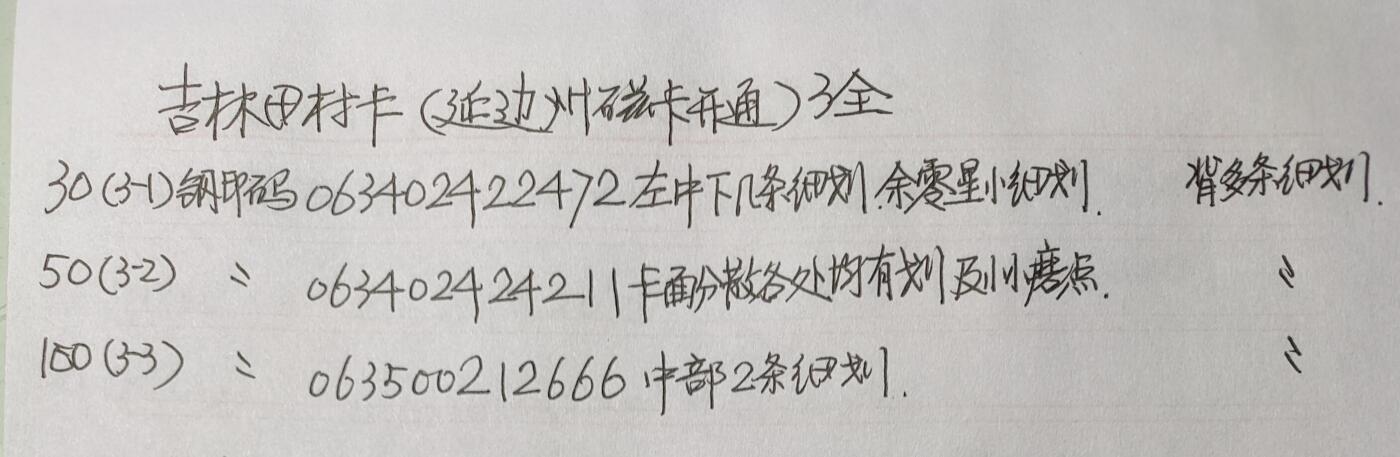 吉林田村卡(延边州磁卡开通)3全
30(3-1)钢印码063402422472左中下几条细划.余零星小细划. 背多条细划.
50(3-2) 〃 063402424211卡面分散各处均有划及小小磨点. 〃
100(3-3) 〃 063500212666中部2条细划. 〃